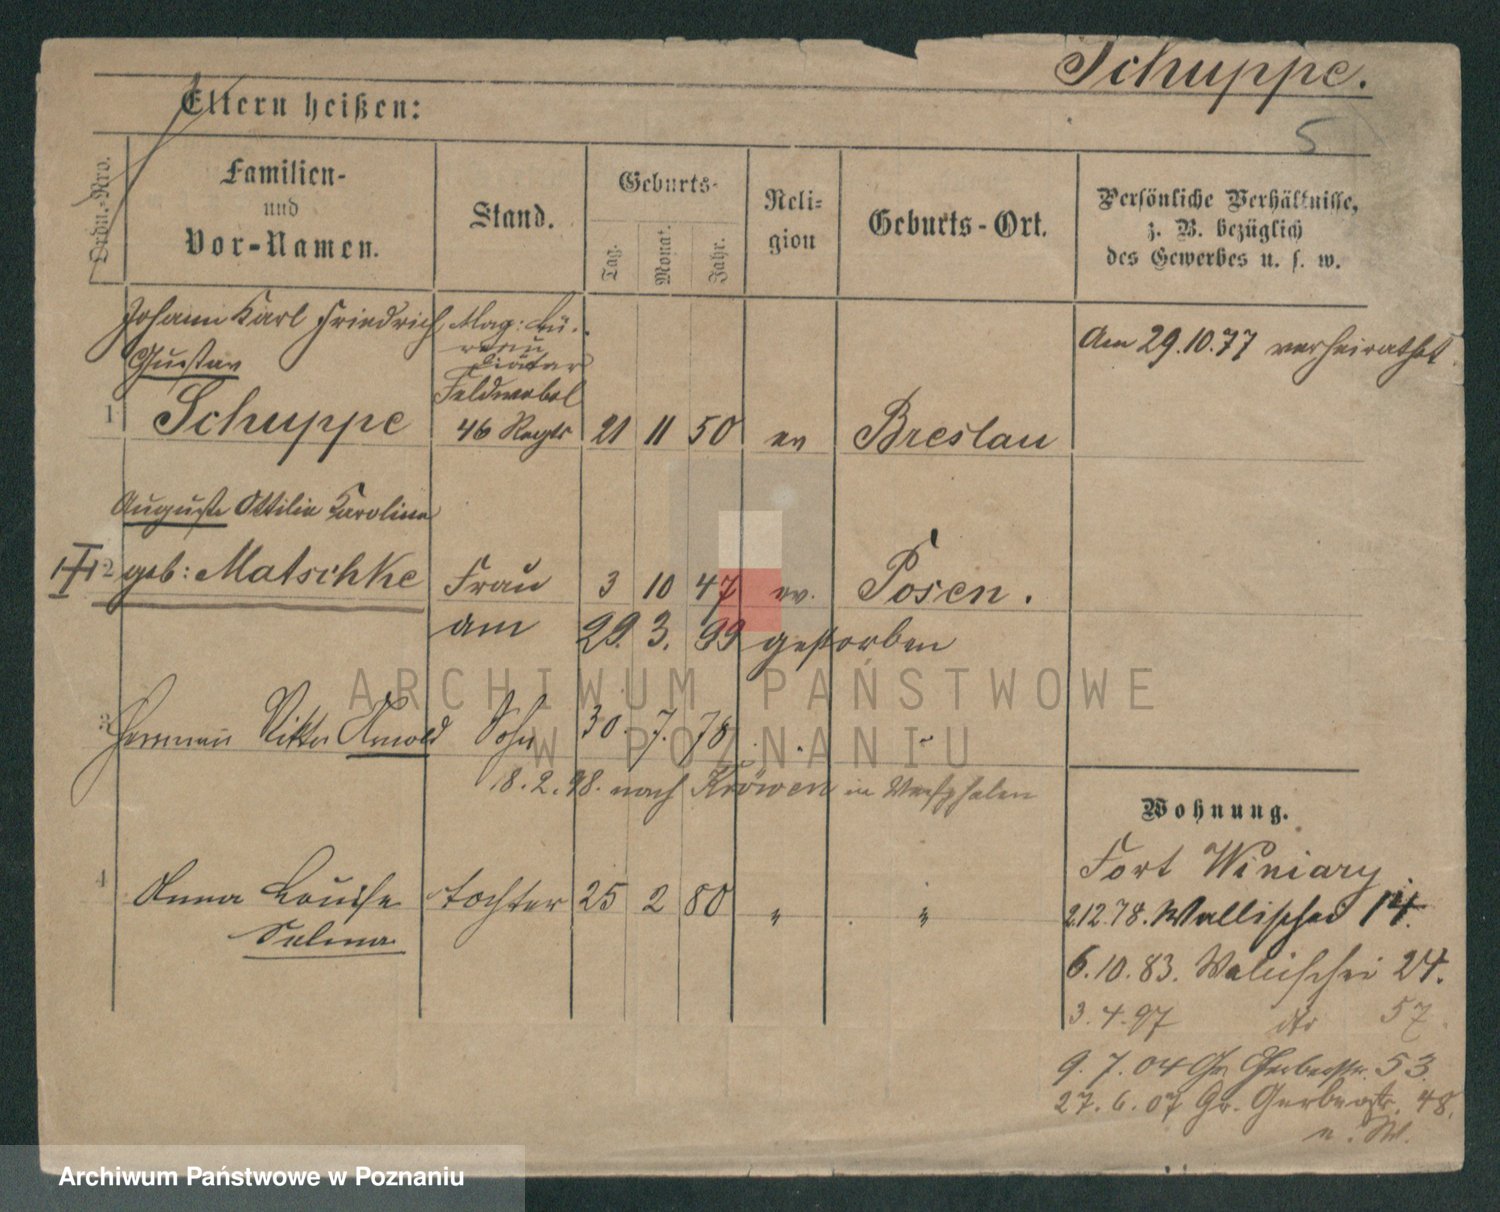 Schuppe.
5
Eltern heißen:
Ordn.-Nro.
Familien-
und
Vor-Namen.
Stand.
Geburts-
Tag.
Monat.
Jahr.
Reli-
gion
Geburts-Ort.
Persönliche Verhältnisse,
z. B. bezüglich
des Gewerbes u. s. w.
Johann Karl Friedrich
Gustav
1 Schuppe
Mag: Bü-
reau
Diätar
Feldwebel
46 Regts
21 11 50 ev Breslau
Am 29.10.77 verheirathet.
Auguste Ottilie Karoline
2 geb: Matschke Frau 3 10 47 ev. Posen.
am 29. 3. 99 gestorben
3 Herrmann Viktor Arnold Sohn 30. 7. 78 " "
18.2.98. nach in Westphalen
4 Anna Louise Tochter 25 2 80 " "
Selma
Wohnung.
Fort Winiary.
2.12.78. Wallischei 14.
6.10.83. Wallischei 24.
3.4.97 dto 57.
9.7.04 Gr. Gerberstr. 53.
27.6.07 Gr. Gerberstr. 48.
n. W.
ARCHIWUM PAŃSTWOWE
W POZNANIU
Archiwum Państwowe w Poznaniu